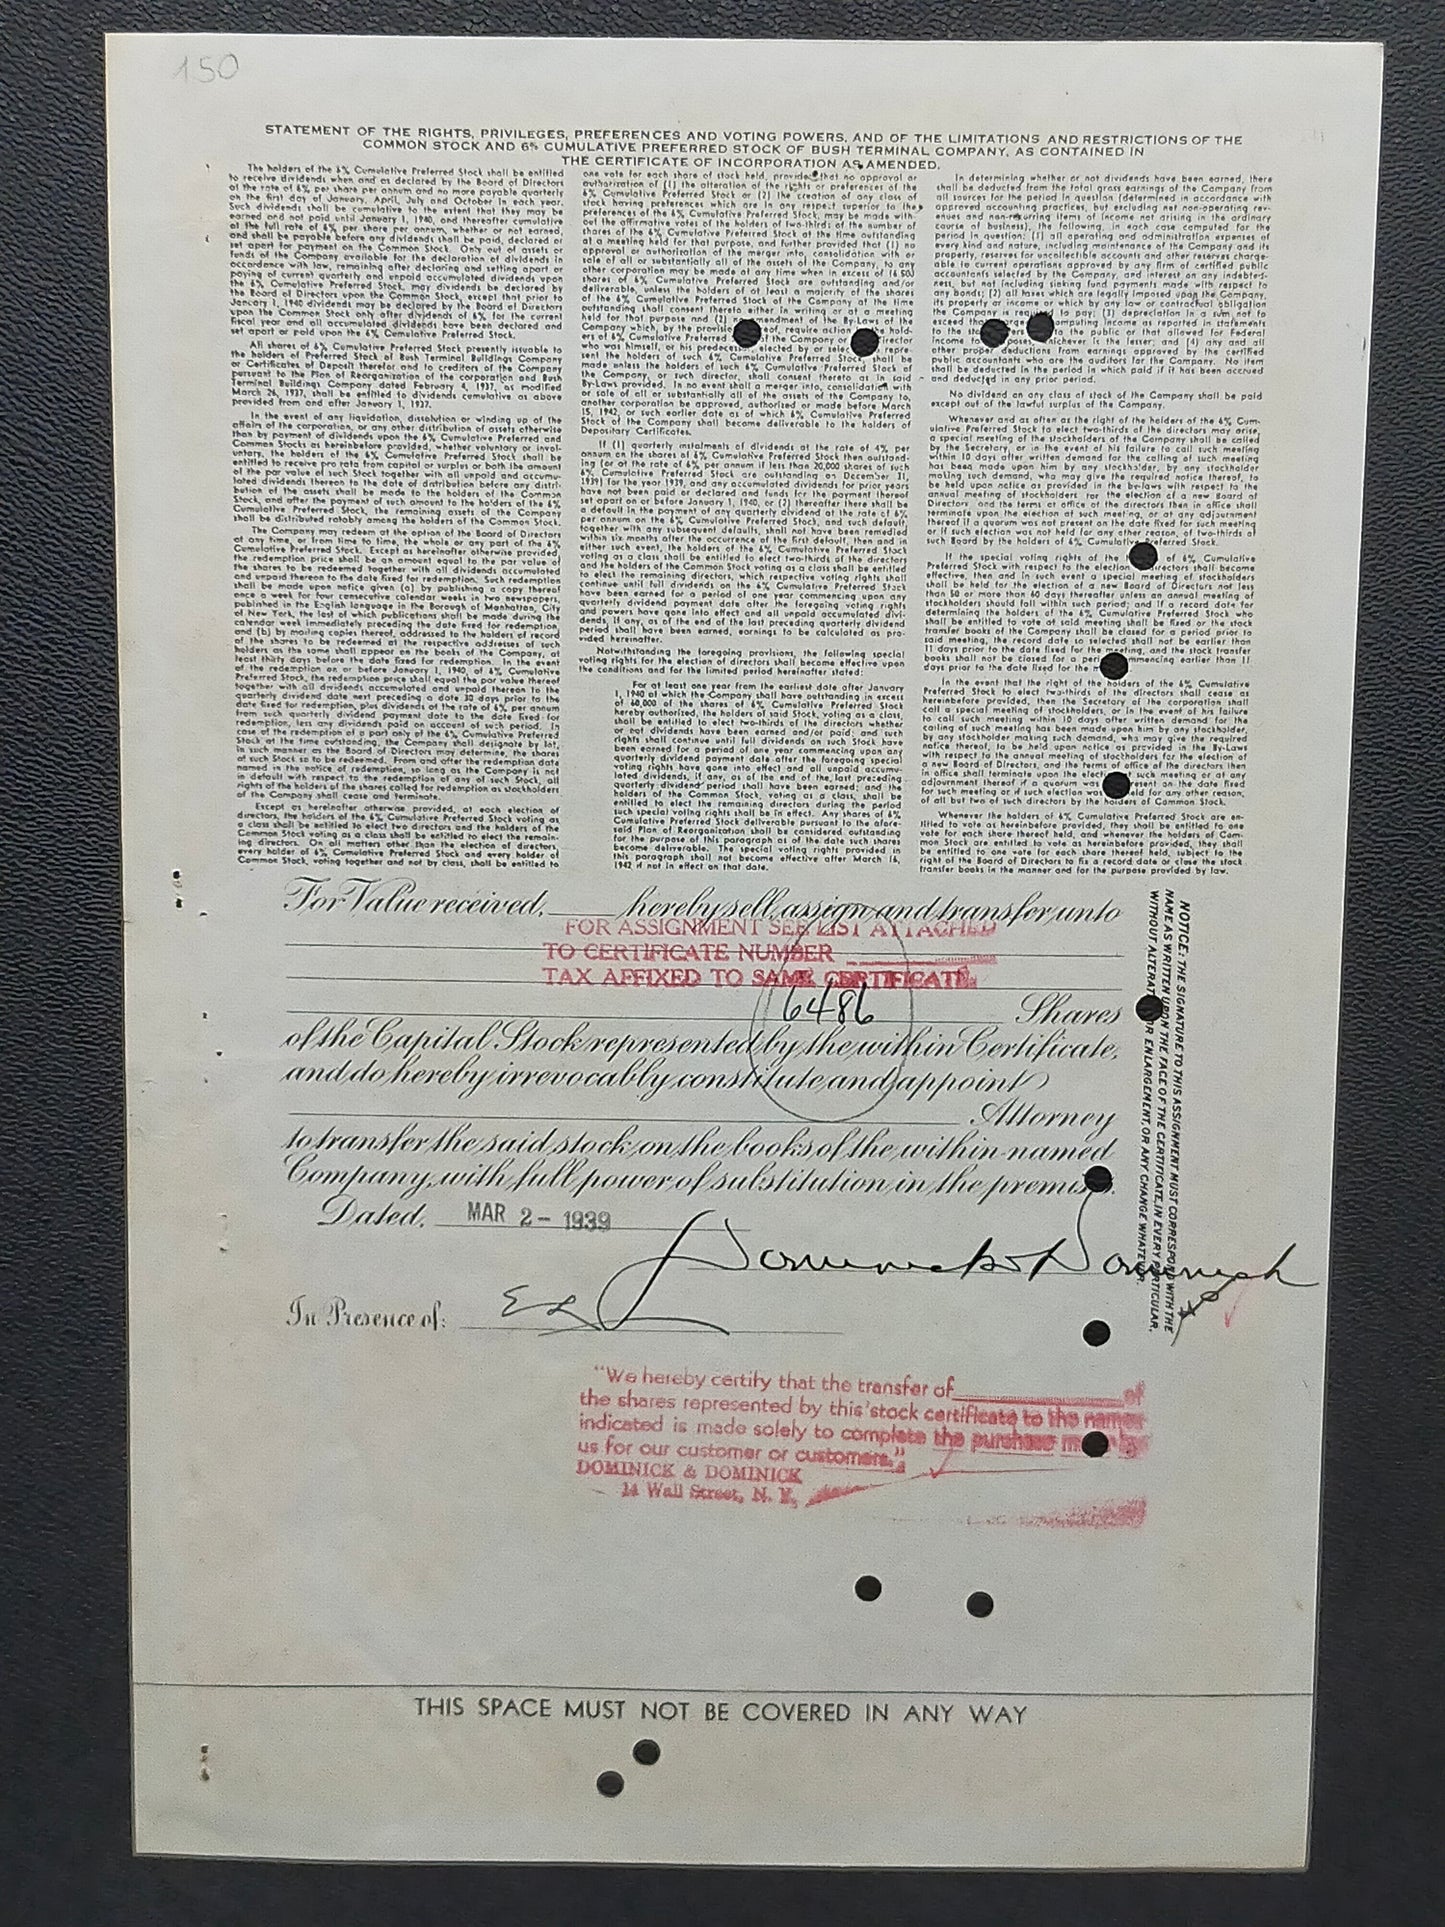 150
STATEMENT OF THE RIGHTS, PRIVILEGES, PREFERENCES AND VOTING POWERS, AND OF THE LIMITATIONS AND RESTRICTIONS OF THE
COMMON STOCK AND 6% CUMULATIVE PREFERRED STOCK OF BUSH TERMINAL COMPANY, AS CONTAINED IN
THE CERTIFICATE OF INCORPORATION AS AMENDED.
The holders of the 6% Cumulative Preferred Stock shall be entitled
to receive dividends when and as declared by the Board of Directors
at the rate of 6% per share per annum and no more payable quarterly
on the first day of January, April, July and October in each year.
Such dividends shall be cumulative to the extent that they may be
earned and not paid until January 1, 1940, and thereafter cumulative
at the full rate of 6% per share per annum, whether or not earned,
and shall be payable before any dividends shall be paid, declared or
set apart for payment on the Common Stock. Only out of assets or
funds of the Company available for the declaration of dividends in
accordance with law, remaining after declaring and setting apart or
paying of current quarterly and unpaid accumulated dividends upon
the 6% Cumulative Preferred Stock, may dividends be declared by
the Board of Directors upon the Common Stock, except that prior to
January 1, 1940 dividends may be declared by the Board of Directors
upon the Common Stock only after dividends of 6% for the current
fiscal year and all accumulated dividends have been declared and
set apart or paid upon the 6% Cumulative Preferred Stock.
All shares of 6% Cumulative Preferred Stock presently issuable to
the holders of Preferred Stock of Bush Terminal Buildings Company
or Certificates of Deposit therefor and to creditors of the Company
pursuant to the Plan of Reorganization of the corporation and Bush
Terminal Buildings Company dated February 4, 1937, as modified
March 26, 1937, shall be entitled to dividends cumulative as above
provided from and after January 1, 1937.
In the event of any liquidation, dissolution or winding up of the
affairs of the corporation, or any other distribution of assets otherwise
than by payment of dividends upon the 6% Cumulative Preferred and
Common Stocks as hereinbefore provided, whether voluntary or invol-
untary, the holders of the 6% Cumulative Preferred Stock shall be
entitled to receive pro rata from capital or surplus or both the amount
of the par value of such Stock together with all unpaid and accumu-
lated dividends thereon to the date of distribution before any distri-
bution of the assets shall be made to the holders of the Common
Stock, and after the payment of such amount to the holders of the 6%
Cumulative Preferred Stock, the remaining assets of the Company
shall be distributed ratably among the holders of the Common Stock.
The Company may redeem at the option of the Board of Directors
at any time, or from time to time, the whole or any part of the 6%
Cumulative Preferred Stock. Except as hereinafter otherwise provided,
the redemption price shall be an amount equal to the par value of
the shares to be redeemed together with all dividends accumulated
and unpaid thereon to the date fixed for redemption. Such redemption
shall be made upon notice given (a) by publishing a copy thereof
once a week for four consecutive calendar weeks in two newspapers,
published in the English language in the Borough of Manhattan, City
of New York, the last of which publications shall be made during the
calendar week immediately preceding the date fixed for redemption,
and (b) by mailing copies thereof, addressed to the holders of record
of the shares to be redeemed at the respective addresses of such
holders as the same shall appear on the books of the Company, at
least thirty days before the date fixed for redemption. In the event
of the redemption on or before January 1, 1940, of 6% Cumulative
Preferred Stock, the redemption price shall equal the par value thereof
together with all dividends accumulated and unpaid thereon to the
quarterly dividend date next preceding a date 30 days prior to the
date fixed for redemption, plus dividends at the rate of 6% per annum
from such quarterly dividend payment date to the date fixed for
redemption, less any dividends paid on account of such period. In
case of the redemption of a part only of the 6% Cumulative Preferred
Stock at the time outstanding, the Company shall designate by lot,
in such manner as the Board of Directors may determine, the shares
of such Stock so to be redeemed. From and after the redemption date
named in the notice of redemption, so long as the Company is not
in default with respect to the redemption of any of such Stock, all
rights of the holders of the shares called for redemption as stockholders
of the Company shall cease and terminate.
Except as hereinafter otherwise provided, at each election of
directors, the holders of the 6% Cumulative Preferred Stock voting as
a class shall be entitled to elect two directors and the holders of the
Common Stock voting as a class shall be entitled to elect the remain-
ing directors. On all matters other than the election of directors,
every holder of 6% Cumulative Preferred Stock and every holder of
Common Stock, voting together and not by class, shall be entitled to
one vote for each share of stock held, provided that no approval or
authorization of (1) the alteration of the rights or preferences of the
6% Cumulative Preferred Stock or (2) the creation of any class of
stock having preferences which are in any respect superior to the
preferences of the 6% Cumulative Preferred Stock, may be made with-
out the affirmative votes of the holders of two-thirds of the number of
shares of the 6% Cumulative Preferred Stock at the time outstanding
at a meeting held for that purpose, and further provided that (1) no
approval or authorization of the merger into, consolidation with or
sale of all or substantially all of the assets of the Company, to any
other corporation may be made at any time when in excess of 16,503
shares of 6% Cumulative Preferred Stock are outstanding and/or
deliverable, unless the holders of at least a majority of the shares
of the 6% Cumulative Preferred Stock of the Company at the time
outstanding shall consent thereto either in writing or at a meeting
held for that purpose and (2) no amendment of the By-Laws of the
Company which, by the provisions of, require action the hold-
ers of 6% Cumulative Preferred of the Company or director
who was himself, or his predecessor, elected by or selec repre-
sent the holders of such 6% Cumulative Preferred Stock, shall be
made unless the holders of such 6% Cumulative Preferred Stock of
the Company, or such director, shall consent thereto as in said
By-Laws provided. In no event shall a merger into, consolidation with
or sale of all or substantially all of the assets of the Company to,
another corporation be approved, authorized or made before March
15, 1942, or such earlier date as of which 6% Cumulative Preferred
Stock of the Company shall become deliverable to the holders of
Depositary Certificates.
If (1) quarterly instalments of dividends at the rate of 4% per
annum on the shares of 6% Cumulative Preferred Stock then outstand-
ing (or at the rate of 6% per annum if less than 20,000 shares of such
6% Cumulative Preferred Stock are outstanding on December 31,
1939) for the year 1939, and any accumulated dividends for prior years
have not been paid or declared and funds for the payment thereof
set apart on or before January 1, 1940, or (2) thereafter there shall be
a default in the payment of any quarterly dividend at the rate of 6%
per annum on the 6% Cumulative Preferred Stock, and such default,
together with any subsequent defaults, shall not have been remedied
within six months after the occurrence of the first default, then and in
either such event, the holders of the 6% Cumulative Preferred Stock
voting as a class shall be entitled to elect two-thirds of the directors
and the holders of the Common Stock voting as a class shall be entitled
to elect the remaining directors, which respective voting rights shall
continue until full dividends on the 6% Cumulative Preferred Stock
have been earned for a period of one year commencing upon any
quarterly dividend payment date after the foregoing voting rights
and powers have gone into effect and all unpaid accumulated divi-
dends, if any, as of the end of the last preceding quarterly dividend
period shall have been earned, earnings to be calculated as pro-
vided hereinafter.
Notwithstanding the foregoing provisions, the following special
voting rights for the election of directors shall become effective upon
the conditions and for the limited period hereinafter stated:
For at least one year from the earliest date after January
1, 1940 at which the Company shall have outstanding in excess
of 60,000 of the shares of 6% Cumulative Preferred Stock
hereby authorized, the holders of said Stock, voting as a class,
shall be entitled to elect two-thirds of the directors whether
or not dividends have been earned and/or paid; and such
rights shall continue until full dividends on such Stock have
been earned for a period of one year commencing upon any
quarterly dividend payment date after the foregoing special
voting rights have gone into effect and all unpaid accumu-
lated dividends, if any, as of the end of the last preceding
quarterly dividend period shall have been earned; and the
holders of the Common Stock, voting as a class, shall be
entitled to elect the remaining directors during the period
such special voting rights shall be in effect. Any shares of 6%
Cumulative Preferred Stock deliverable pursuant to the afore-
said Plan of Reorganization shall be considered outstanding
for the purpose of this paragraph as of the date such shares
become deliverable. The special voting rights provided in
this paragraph shall not become effective after March 16,
1942 if not in effect on that date.
In determining whether or not dividends have been earned, there
shall be deducted from the total gross earnings of the Company from
all sources for the period in question (determined in accordance with
approved accounting practices, but excluding net non-operating rev-
enues and non-recurring items of income not arising in the ordinary
course of business), the following, in each case computed for the
period in question: (1) all operating and administration expenses of
every kind and nature, including maintenance of the Company and its
property, reserves for uncollectible accounts and other reserves charge-
able to current operations approved by any firm of certified public
accountants selected by the Company, and interest on any indebted-
ness, but not including sinking fund payments made with respect to
any bonds; (2) all taxes which are legally imposed upon the Company,
its property or income or which by law or contractual obligation
the Company is required to pay; (3) depreciation in a sum not to
exceed the computing income as reported in statements
to the to the public or that allowed for Federal
income whichever is the lesser; and (4) any and all
other proper deductions from earnings approved by the certified
public accountants who are the auditors for the Company. No item
shall be deducted in the period in which paid if it has been accrued
and deducted in any prior period.
No dividend on any class of stock of the Company shall be paid
except out of the lawful surplus of the Company.
Whenever and as often as the right of the holders of the 6% Cum-
ulative Preferred Stock to elect two-thirds of the directors may arise,
a special meeting of the stockholders of the Company shall be called
by the Secretary, or in the event of his failure to call such meeting
within 10 days after written demand for the calling of such meeting
has been made upon him by any stockholder, by any stockholder
making such demand, who may give the required notice thereof, to
be held upon notice as provided in the by-laws with respect to the
annual meeting of stockholders for the election of a new Board of
Directors and the terms of office of the directors then in office shall
terminate upon the election at such meeting, or at any adjournment
thereof if a quorum was not present on the date fixed for such meeting
or if such election was not held for any other reason, of two-thirds of
such Board by the holders of 6% Cumulative Preferred Stock.
If the special voting rights of the of 6% Cumulative
Preferred Stock with respect to the election directors shall become
effective, then and in such event a special meeting of stockholders
shall be held for the election of a new Board of Directors not less
than 50 or more than 60 days thereafter unless an annual meeting of
stockholders should fall within such period; and if a record date for
determining the holders of the 6% Cumulative Preferred Stock who
shall be entitled to vote at said meeting shall be fixed or the stock
transfer books of the Company shall be closed for a period prior to
said meeting, the record date so selected shall not be earlier than
11 days prior to the date fixed for the meeting, and the stock transfer
books shall not be closed for a period commencing earlier than 11
days prior to the date fixed for the
In the event that the right of the holders of the 6% Cumulative
Preferred Stock to elect two-thirds of the directors shall cease as
hereinbefore provided, then the Secretary of the corporation shall
call a special meeting of stockholders, or in the event of his failure
to call such meeting within 10 days after written demand for the
calling of such meeting has been made upon him by any stockholder,
by any stockholder making such demand, who may give the required
notice thereof, to be held upon notice as provided in the By-Laws
with respect to the annual meeting of stockholders for the election of
a new Board of Directors, and the terms of office of the directors then
in office shall terminate upon the election at such meeting or at any
adjournment thereof if a quorum was present on the date fixed
for such meeting or if such election was held for any other reason,
of all but two of such directors by the holders of Common Stock.
Whenever the holders of 6% Cumulative Preferred Stock are en-
titled to vote as hereinbefore provided, they shall be entitled to one
vote for each share thereof held, and whenever the holders of Com-
mon Stock are entitled to vote as hereinbefore provided, they shall
be entitled to one vote for each share thereof held, subject to the
right of the Board of Directors to fix a record date or close the stock
transfer books in the manner and for the purpose provided by law.
For Value received, hereby sell, assign and transfer unto
FOR ASSIGNMENT SEE LIST ATTACHED
TO CERTIFICATE NUMBER
TAX AFFIXED TO SAME CERTIFICATE.
6486
Shares
of the Capital Stock represented by the within Certificate,
and do hereby irrevocably constitute and appoint
Attorney
to transfer the said stock on the books of the within-named
Company, with full power of substitution in the premises.
Dated, MAR 2 - 1939
Dominick & Dominick
In Presence of:
NOTICE: THE SIGNATURE TO THIS ASSIGNMENT MUST CORRESPOND WITH THE
NAME AS WRITTEN UPON THE FACE OF THE CERTIFICATE, IN EVERY PARTICULAR,
WITHOUT ALTERATION OR ENLARGEMENT, OR ANY CHANGE WHATEVER.
"We hereby certify that the transfer of of
the shares represented by this stock certificate to the names
indicated is made solely to complete the purchase made by
us for our customer or customers."
DOMINICK & DOMINICK
14 Wall Street, N. Y.
THIS SPACE MUST NOT BE COVERED IN ANY WAY